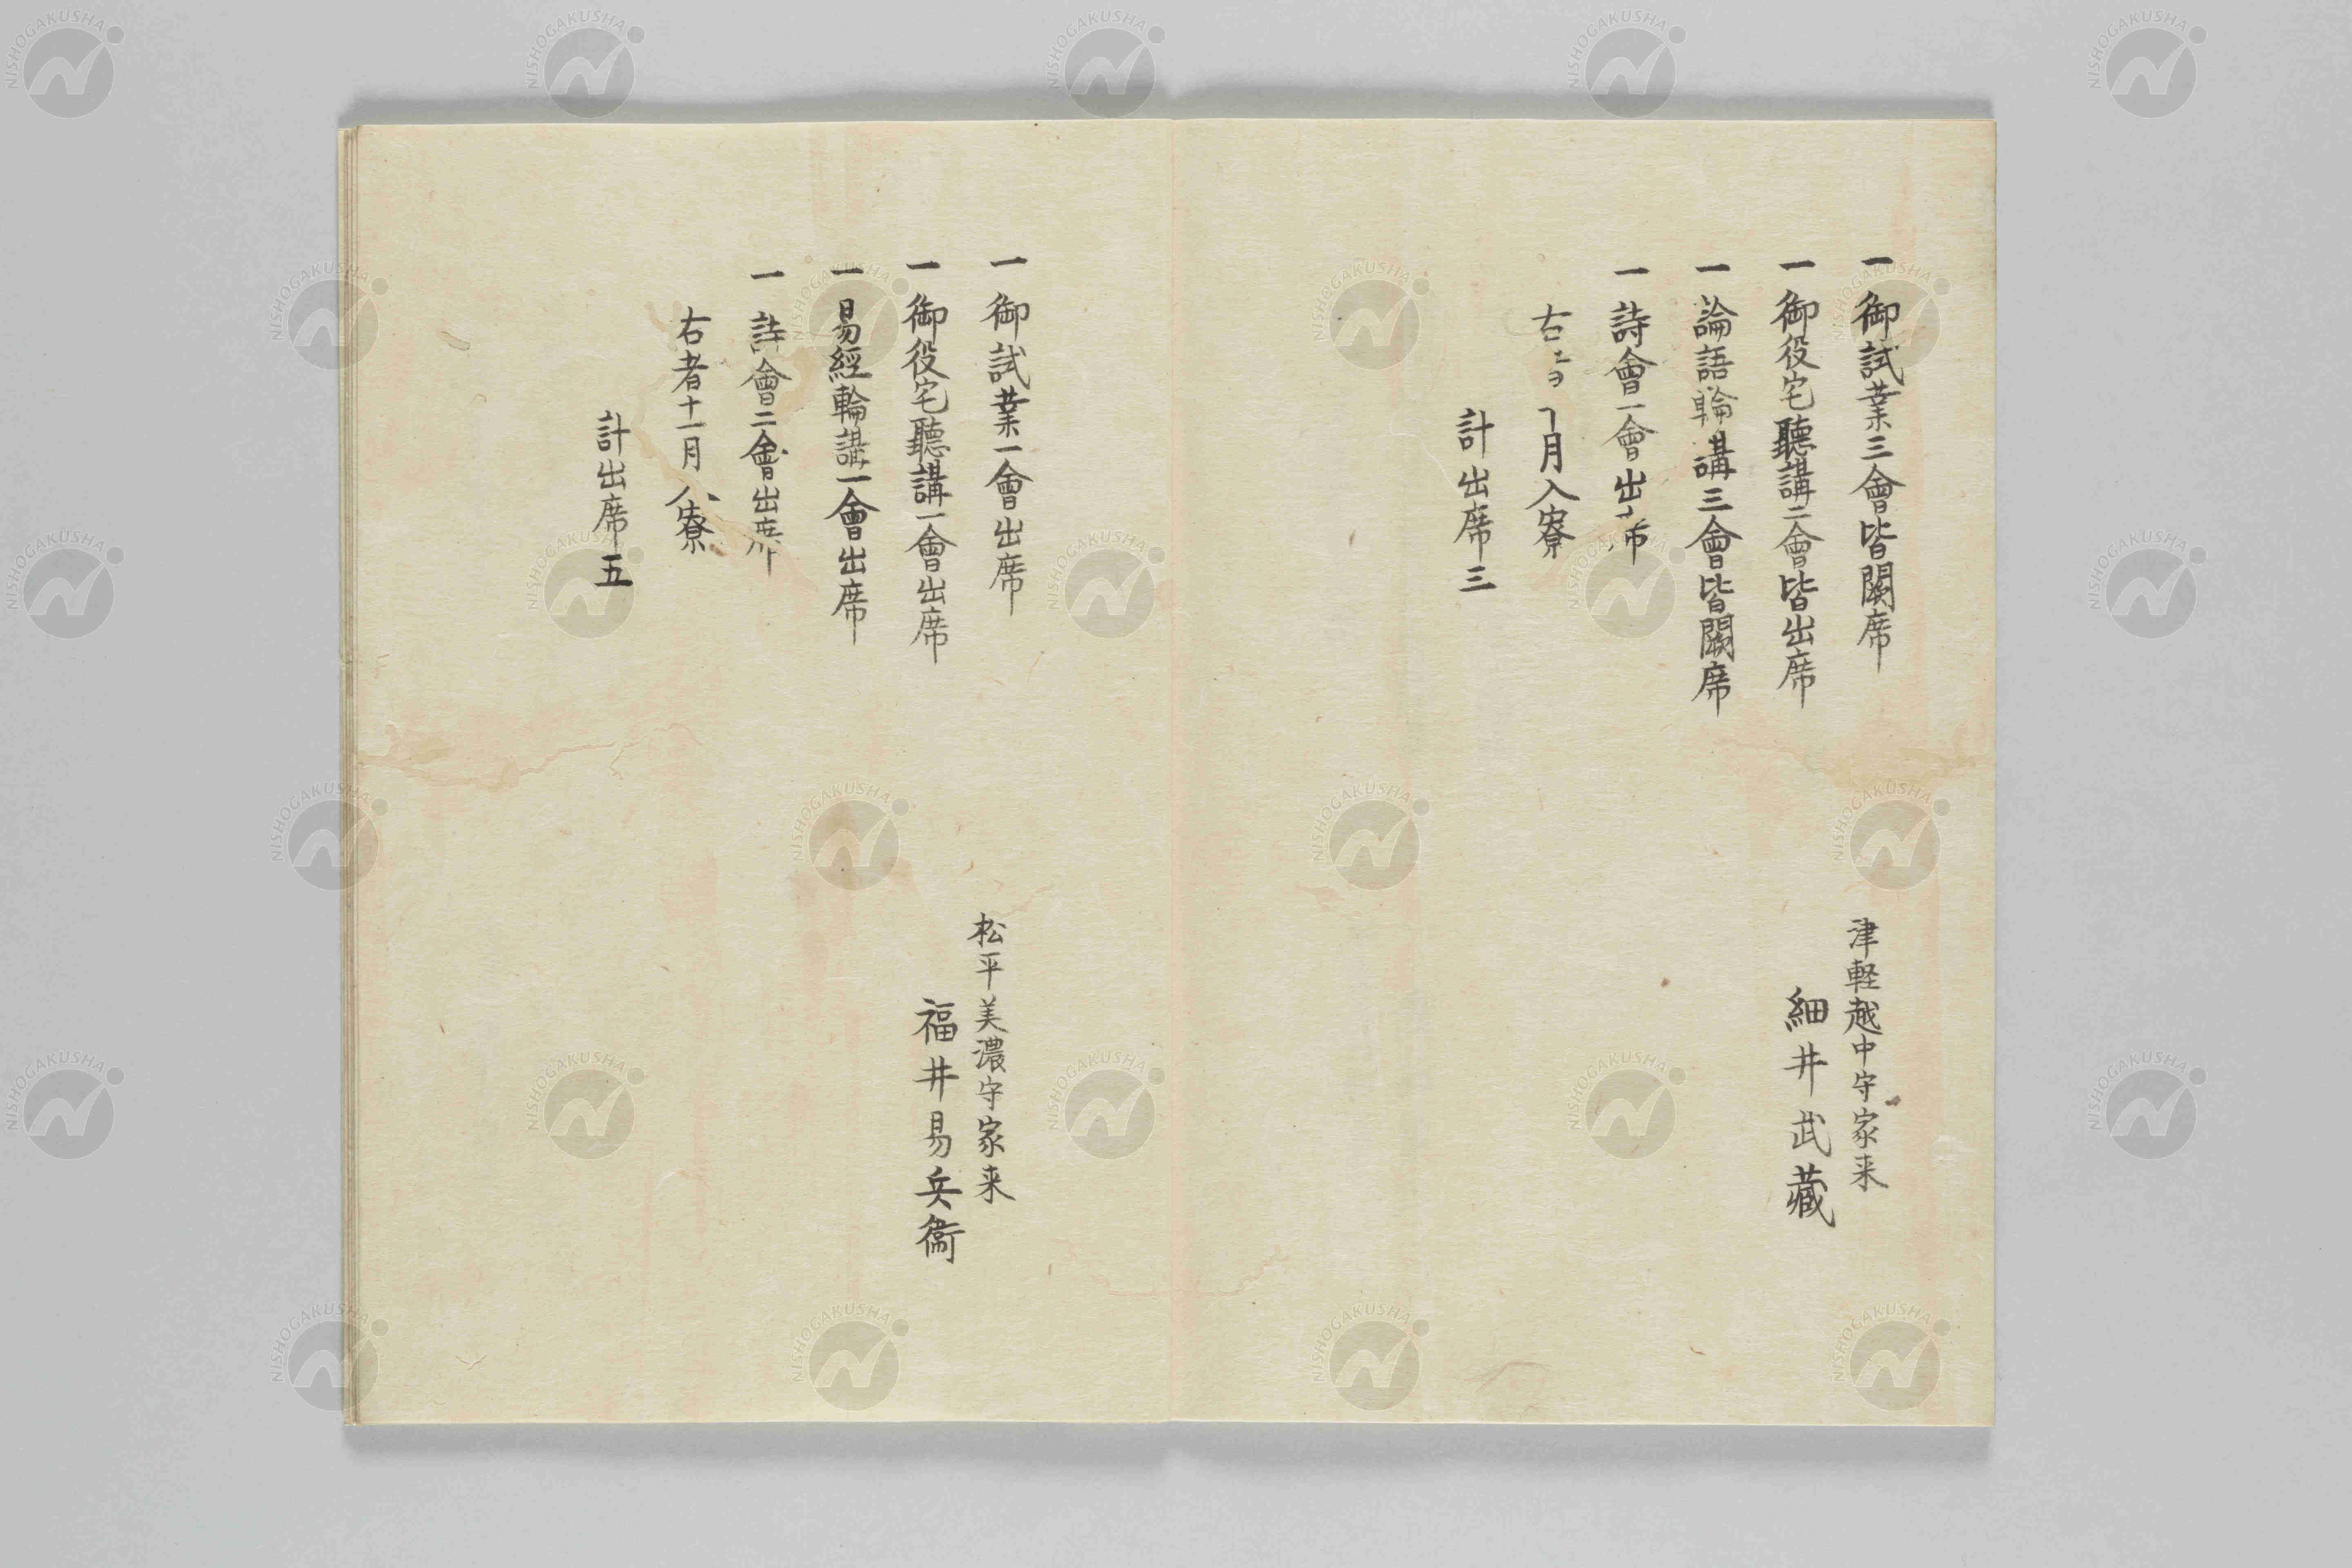 一御試業三會皆闕席
津軽越中守家来
細井武藏
一御役宅聽講二會皆出席
一論語輪講三會皆闕席
一詩會一會出席
右 月入寮
計出席三
一御試業一會出席
松平美濃守家来
福井易兵衞
一御役宅聽講一會出席
一易經輪講一會出席
一詩會二會出席
右者十一月入寮
計出席五
NISHOGAKUSHA